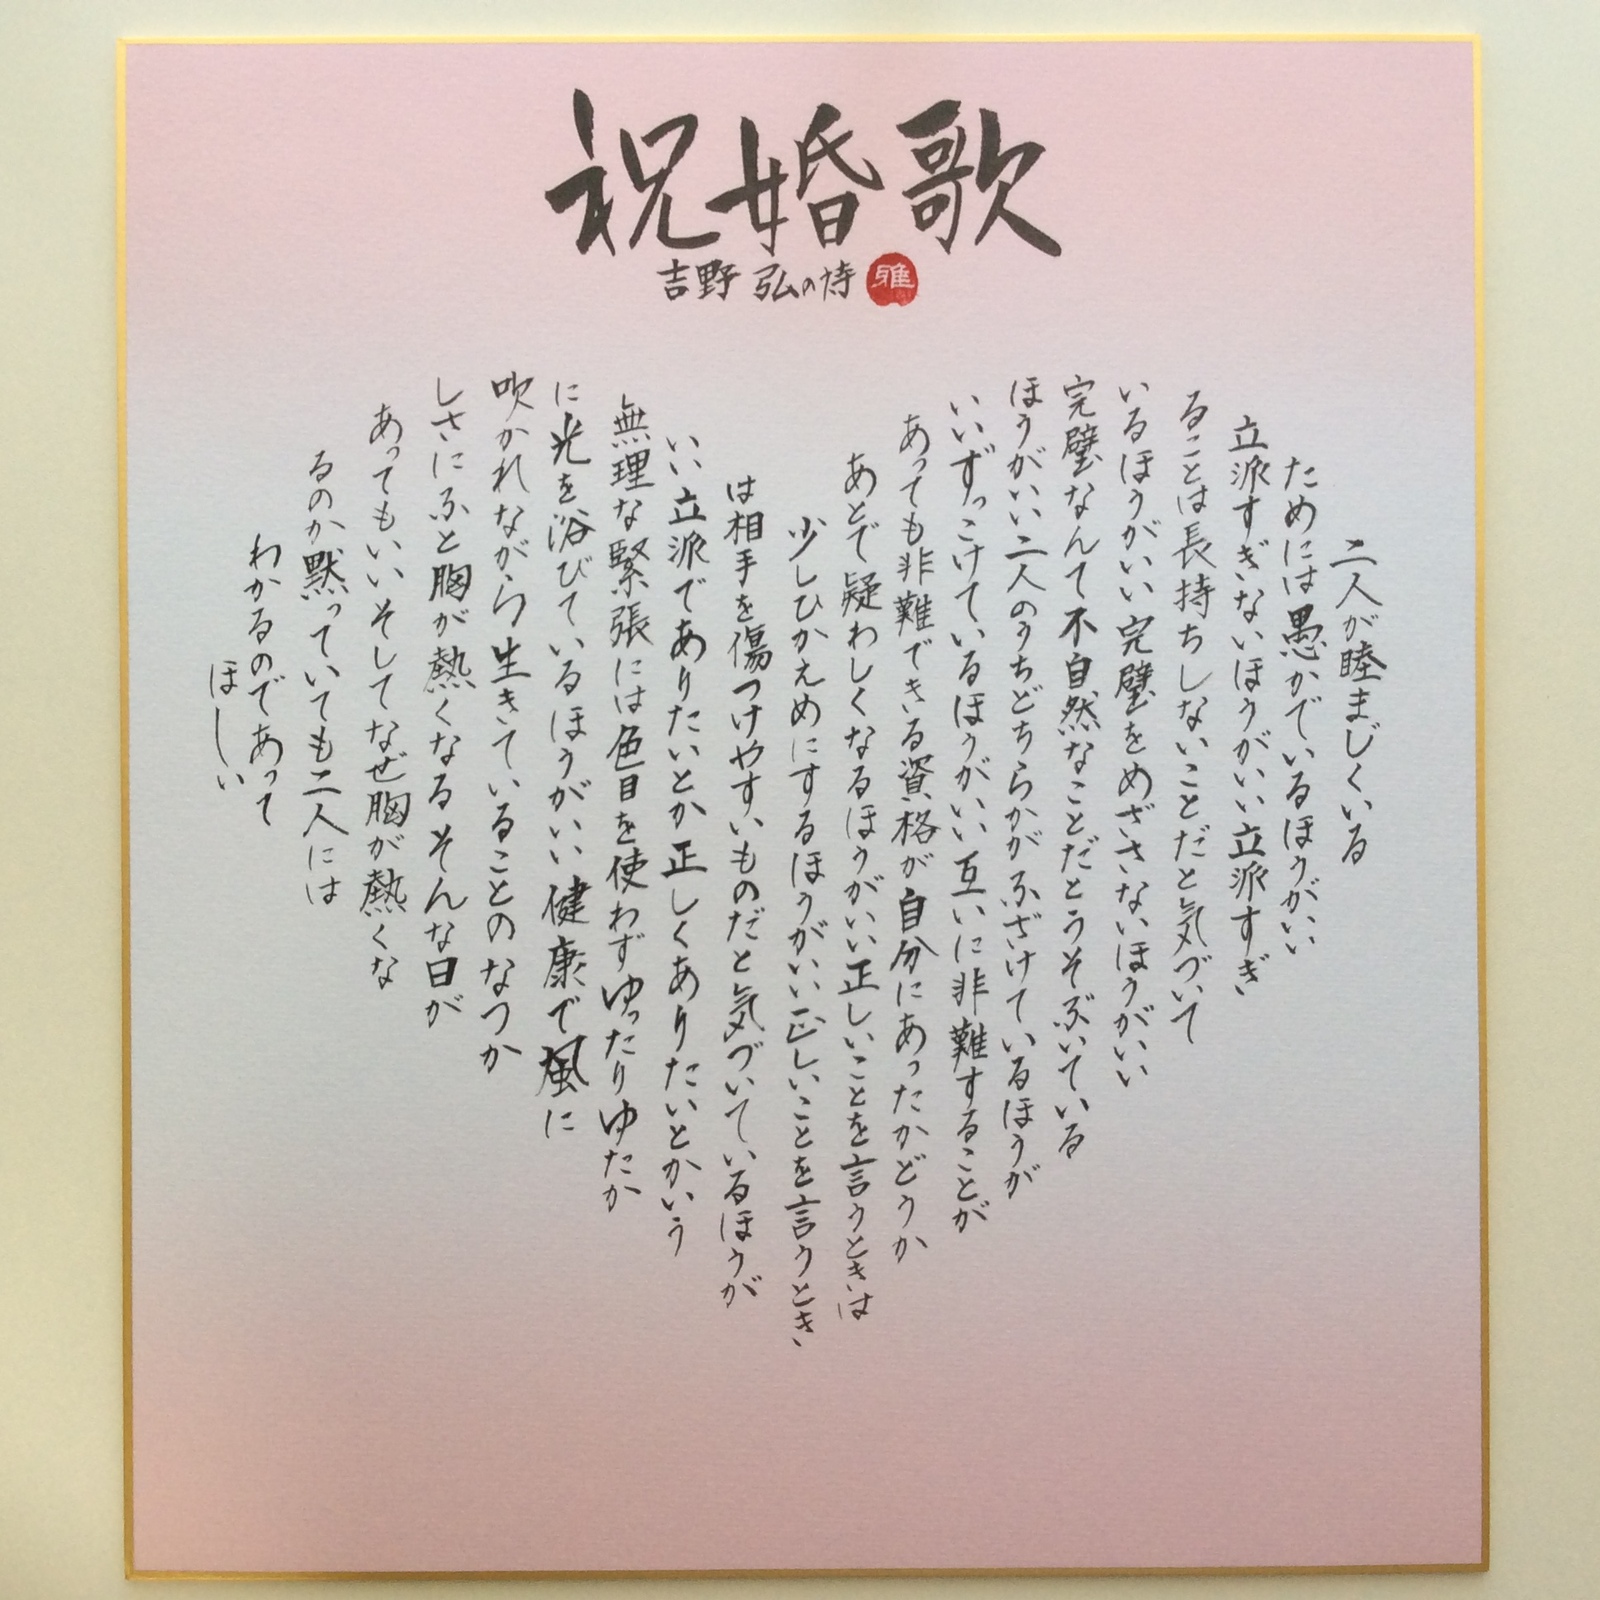 祝婚歌
吉野 弘の詩
雅
二人が睦まじくいる
ためには愚かでいるほうがいい
立派すぎないほうがいい立派すぎ
ることは長持ちしないことだと気づいて
いるほうがいい完璧をめざさないほうがいい
完璧なんて不自然なことだとうそぶいている
ほうがいい二人のうちどちらかがふざけているほうが
いいずっこけているほうがいい互いに非難することが
あっても非難できる資格が自分にあったかどうか
あとで疑わしくなるほうがいい正しいことを言うときは
少しひかえめにするほうがいい正しいことを言うとき
は相手を傷つけやすいものだと気づいているほうが
いい立派でありたいとか正しくありたいとかいう
無理な緊張には色目を使わずゆったりゆたか
に光を浴びているほうがいい健康で風に
吹かれながら生きていることのなつか
しさにふと胸が熱くなるそんな日が
あってもいいそしてなぜ胸が熱くな
るのか黙っていても二人には
わかるのであって
ほしい